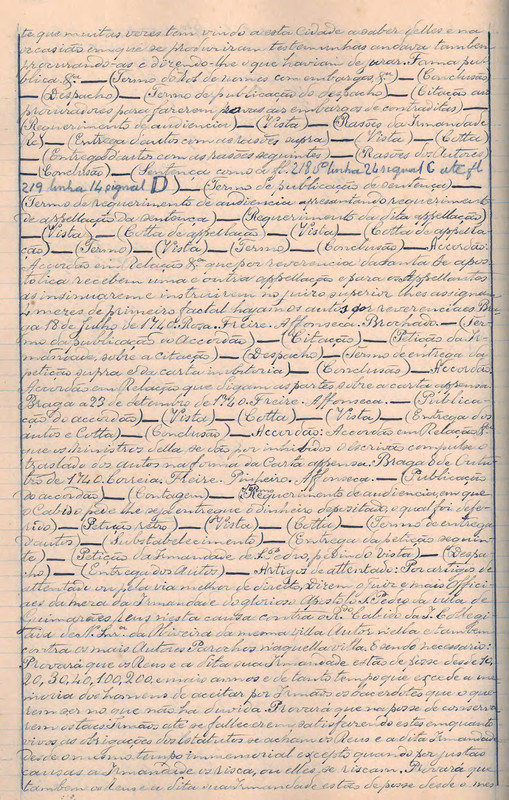 te que muitas vezes tem vindo a esta Cidade a saber delles e na
occasião em que se produziram testemunhas andava tambem
procurando-as e dizendo-lhe o que haviam de jurar. Forma pu-
blica &ª — (Termo do rol de nomes com embargos, &ª) — (Conclusão)
— (Despacho) — (Termo de publicação do despacho) — (Citação aos
procuradores para fazerem provas aos embargos de contraditas) —
(Requerimento de audiencia) — (Vista) — (Rasões da Irmanda-
de) — (Entrega d'autos com as rasões supra) — (Vista) — (Cotta)
— (Entrega d'autos com as rasões seguintes) — (Rasões dos Autores)
— (Conclusão) — (Sentença como a fl. 218 vº linha 24 signal C até fl
219 linha 14 signal D) — (Termo de publicação de sentença) —
(Termo de requerimento de audiencia apresentando requerimento
de appellação da sentença) — (Requerimento da dita appellação)
— (Vista) — (Cotta de appellação) — (Vista) — (Cotta de appella-
ção) — (Termo) — (Vista) — (Termo) — (Conclusão) — Accordão:
Accordão em Relação &ª que por reverencia da Santa Sé apos-
tolica recebem uma e outra appellação e para os Appellantes
as insinuarem e instruirem no juizo superior lhes assignam
4 mezes de primeiro factal hajam os autos por reverenciaes Bra-
ga 18 de Julho de 1740. Rosa. Freire. Affonseca. Brochado — (Ter-
mo da publicação do Accordão) — (Citação) — (Petição da Ir-
mandade, sobre a citação) — (Despacho) — (Termo de entrega da
petição supra e da carta inhibitoria) — (Conclusão) — Accordão:
Accordão em Relação que digam as partes sobre a carta appensa.
Braga a 23 de Setembro de 1740. Freire. Affonseca. — (Publica-
ção do accordão) — (Vista) — (Cotta) — (Vista) — (Entrega dos
autos e Cotta) — (Conclusão) — Accordão: Accordão em Relação &ª
que os ministros della se dão por inhibidos o Escrivão compulse o
traslado dos autos na forma da Carta appensa. Braga 8 de Outu-
bro de 1740. Correa. Freire. Pinheiro. Affonseca. — (Publicação
do accordão) — (Contagem) — Requerimento de audiencia, em que
o Cabido pede lhe seja entregue o dinheiro depositado, o qual foi defe-
rido) — (Petição retro) — (Vista) — (Cotta) — (Termo de entrega
d'autos) — (Substabelecimento) — (Entrega da petição seguin-
te) — (Petição da Irmandade de S. Pedro, pedindo vista) — (Despa-
cho) — (Entrega dos Autos) — Artigos de attentado: Por artigos de
attentado ou pela via melhor de direito, Dizem o Juiz e mais Offici-
aes da meza da Irmandade do glorioso Apostolo S. Pedro da villa de
Guimarães, Reus nesta causa contra o Rmo Cabido da I. Collegi-
ada de Nª Srª da Oliveira da mesma villa Autor nella e tambem
contra os mais Autores Parochos naquella villa. E sendo necessario:
Provará que os Reus e a dita sua Irmandade estão de posse desde 10,
20, 30, 40, 100, 200, e mais annos e de tanto tempo que excede a me-
moria dos homens de aceitar por Irmãos os sacerdotes que o que-
rem ser no que não ha duvida. Provará que na posse de conserva-
rem estes Irmãos até se fallecerem, satisfazendo estes emquanto
vivos, as obrigações dos Estatutos se acham os Reus e a dita Irmandade
desde o mesmo tempo immemorial excepto quando por justas
causas a Irmandade os risca, ou elles se riscam. Provará que
tambem os Reus e a dita sua Irmandade estão de posse desde o mes-